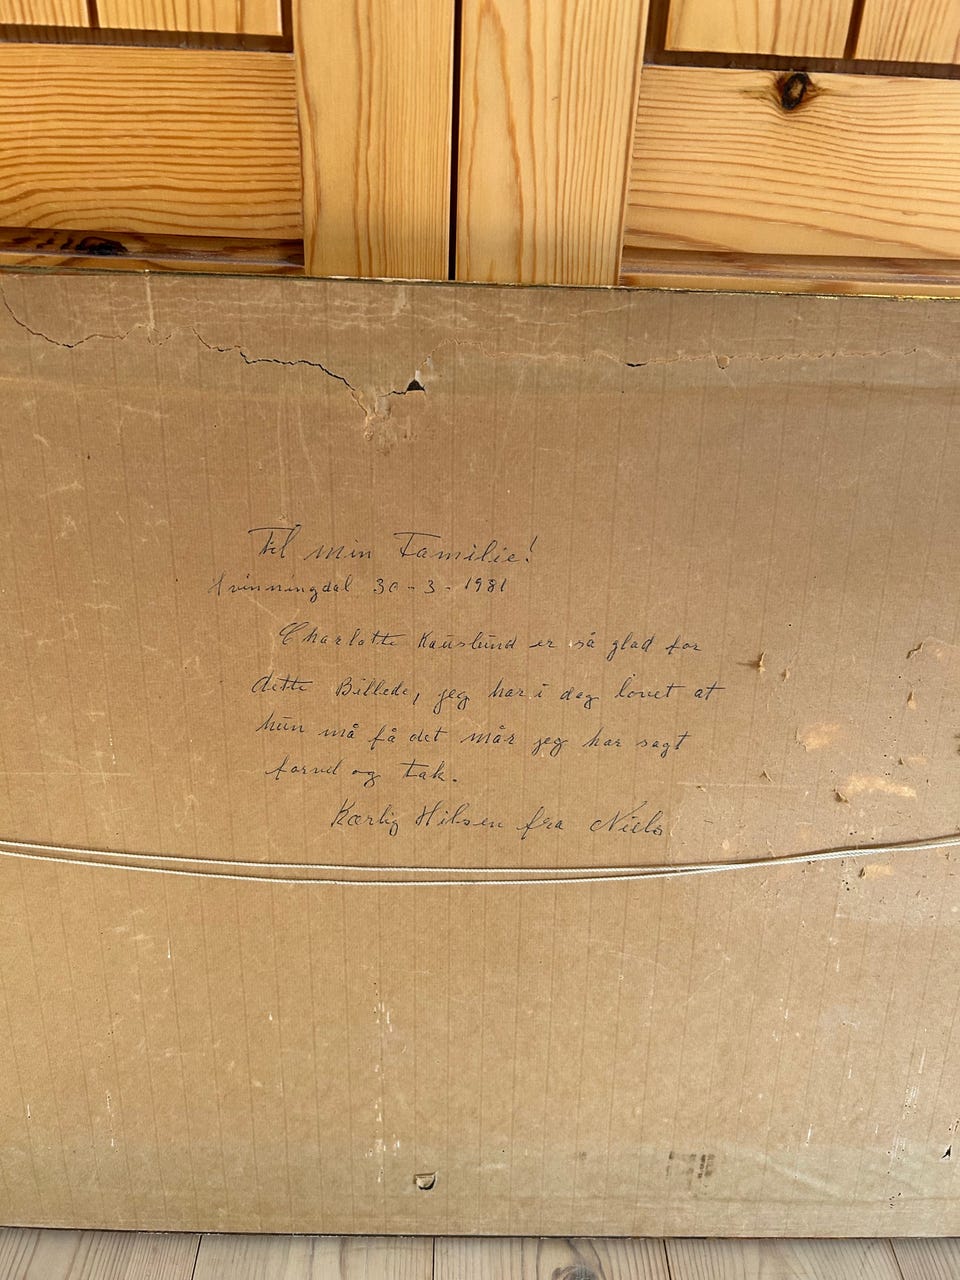 Til min Familie!
Hvinningdal 30-3-1981
Charlotte Kauslund er så glad for
dette Billede, jeg har i dag lovet at
hun må få det når jeg har sagt
farvel og tak.
Kærlig Hilsen fra Niels